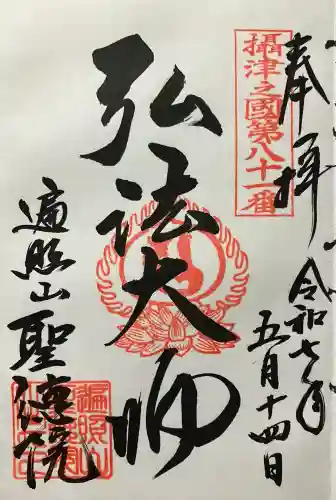 奉拝
攝津之國第八十一番
令和七年
五月十四日
弘法大師
遍照山
聖徳院